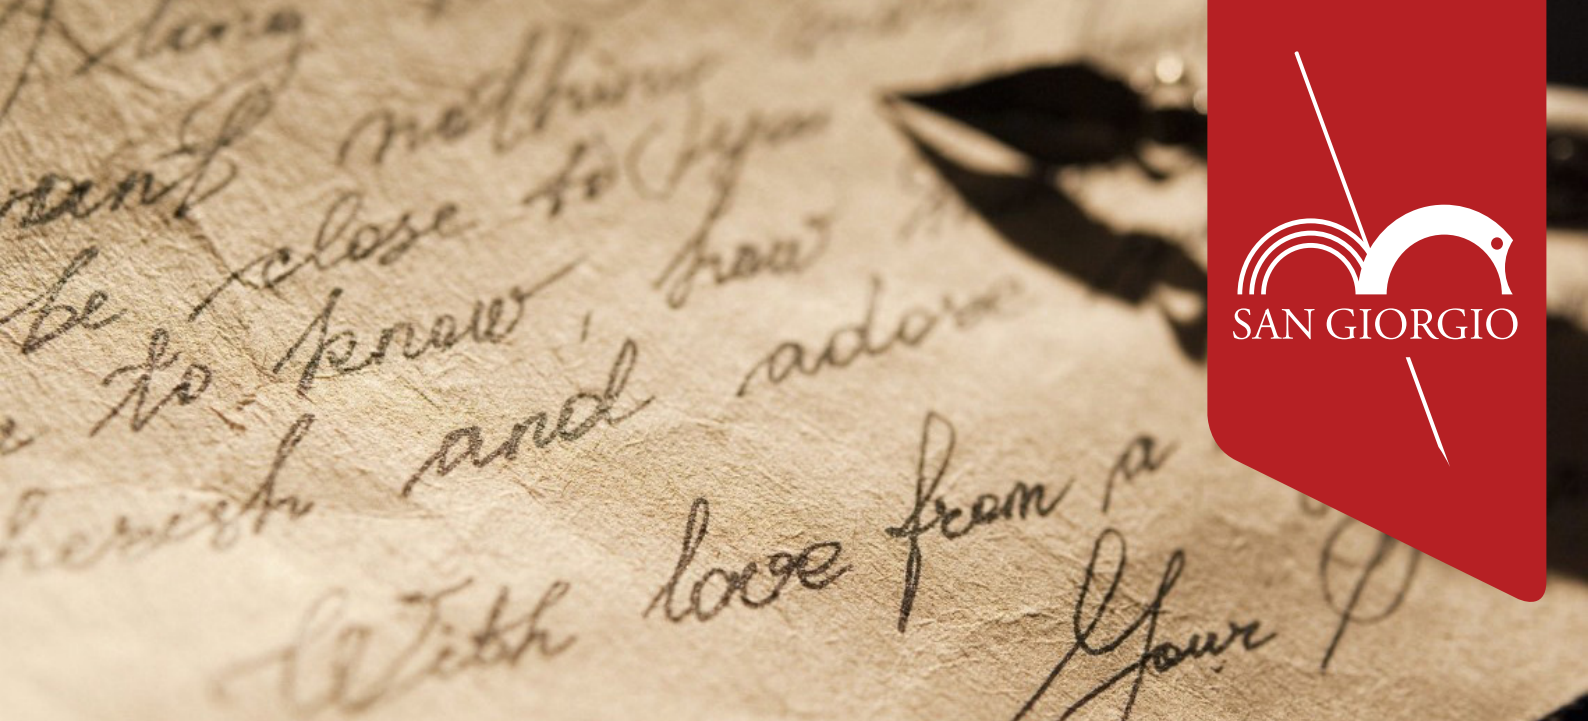 long
want nothing
be close to you
to know, how
cherish and adore
With love from a
Your
SAN GIORGIO